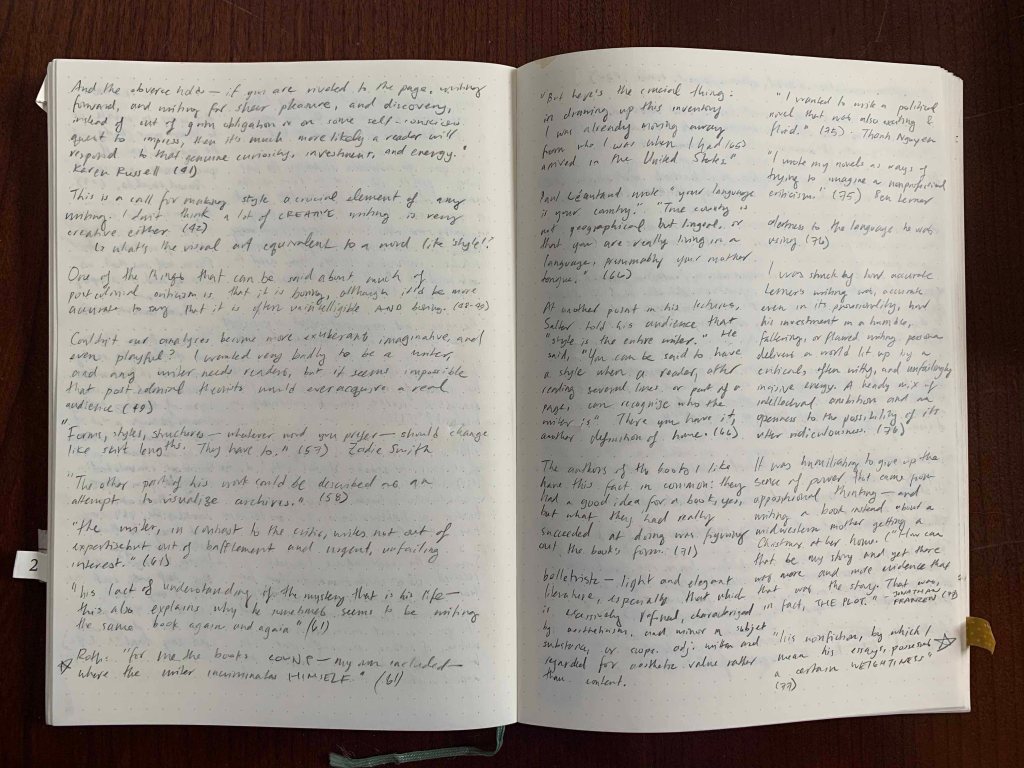 And the obverse holds — if you are riveted to the page, writing
forward, and writing for sheer pleasure, and discovery,
instead of out of grim obligation or on some self-conscious
quest to impress, then it's much more likely a reader will
respond to that genuine curiosity, investment, and energy."
Karen Russell (41)
This is a call for making style a crucial element of any
writing. I don't think a lot of CREATIVE writing is very
creative either (42)
↳ what's the visual art equivalent to a word like style!?
One of the things that can be said about much of
postcolonial criticism is, that it is boring, although it'd be more
accurate to say that it is often unintelligible AND boring.
Couldn't our analyses become more exuberant, imaginative, and
even playful? I wanted very badly to be a writer,
and any writer needs readers, but it seems impossible
that post-colonial theorists would ever acquire a real
audience (49)
"Forms, styles, structures — whatever word you prefer — should change
like skirt lengths. They have to." (57) Zadie Smith
"The other part of his work could be described as an
attempt to visualize archives." (58)
"The writer, in contrast to the critic, writes not out of
expertise but out of bafflement and urgent, unfailing
interest." (61)
"his lack of understanding of the mystery that is his life —
this also explains why he sometimes seems to be writing
the same book again and again" (61)
☆ Roth: "for me the books COUNT — my own included —
where the writer incriminates HIMSELF." (61)
2
"But here's the crucial thing:
in drawing up this inventory
I was already moving away
from who I was when I had (65)
arrived in the United States"
Paul Léautaud wrote "your language
is your country." "True country is
not geographical but lingual, or
that you are really living in a
language, presumably your mother
tongue." (66)
At another point in his lectures,
Salter told his audience that
"style is the entire writer." He
said, "You can be said to have
a style when a reader, after
reading several lines or part of a
page, can recognize who the
writer is" There you have it,
another definition of home. (66)
The authors of the books I like
have this fact in common: they
had a good idea for a book, yes,
but what they had really
succeeded at doing was figuring
out the book's form. (71)
belletristic — light and elegant
literature, especially that which
is excessively refined, characterized
by aestheticism, and minor in subject
substance, or scope. adj. written and
regarded for aesthetic value rather
than content.
"I wanted to write a political
novel that was also exciting &
fluid." (75) Thanh Nguyen
"I wrote my novels as ways of
trying to imagine a nonprofessional
criticism" (75) Ben Lerner
alertness to the language he was
using (76)
I was struck by how accurate
Lerner's writing was, accurate
even in its provisionality, how
his investment in a humble,
faltering, or flawed writing persona
delivers a world lit up by a
critical, often witty, and unfailingly
incisive energy. A heady mix of
intellectual ambition and an
openness to the possibility of its
utter ridiculousness. (76)
It was humiliating to give up the
sense of power that came from
oppositional thinking — and
writing a book instead about a
midwestern mother getting a
Christmas at her home. ("How can
that be my story and yet there
was more and more evidence that
that was the story. That was,
in fact, THE PLOT." - JONATHAN
FRANZEN
"his nonfiction, by which I
mean his essays, possesses ☆
a certain WEIGHTINESS"
(77)